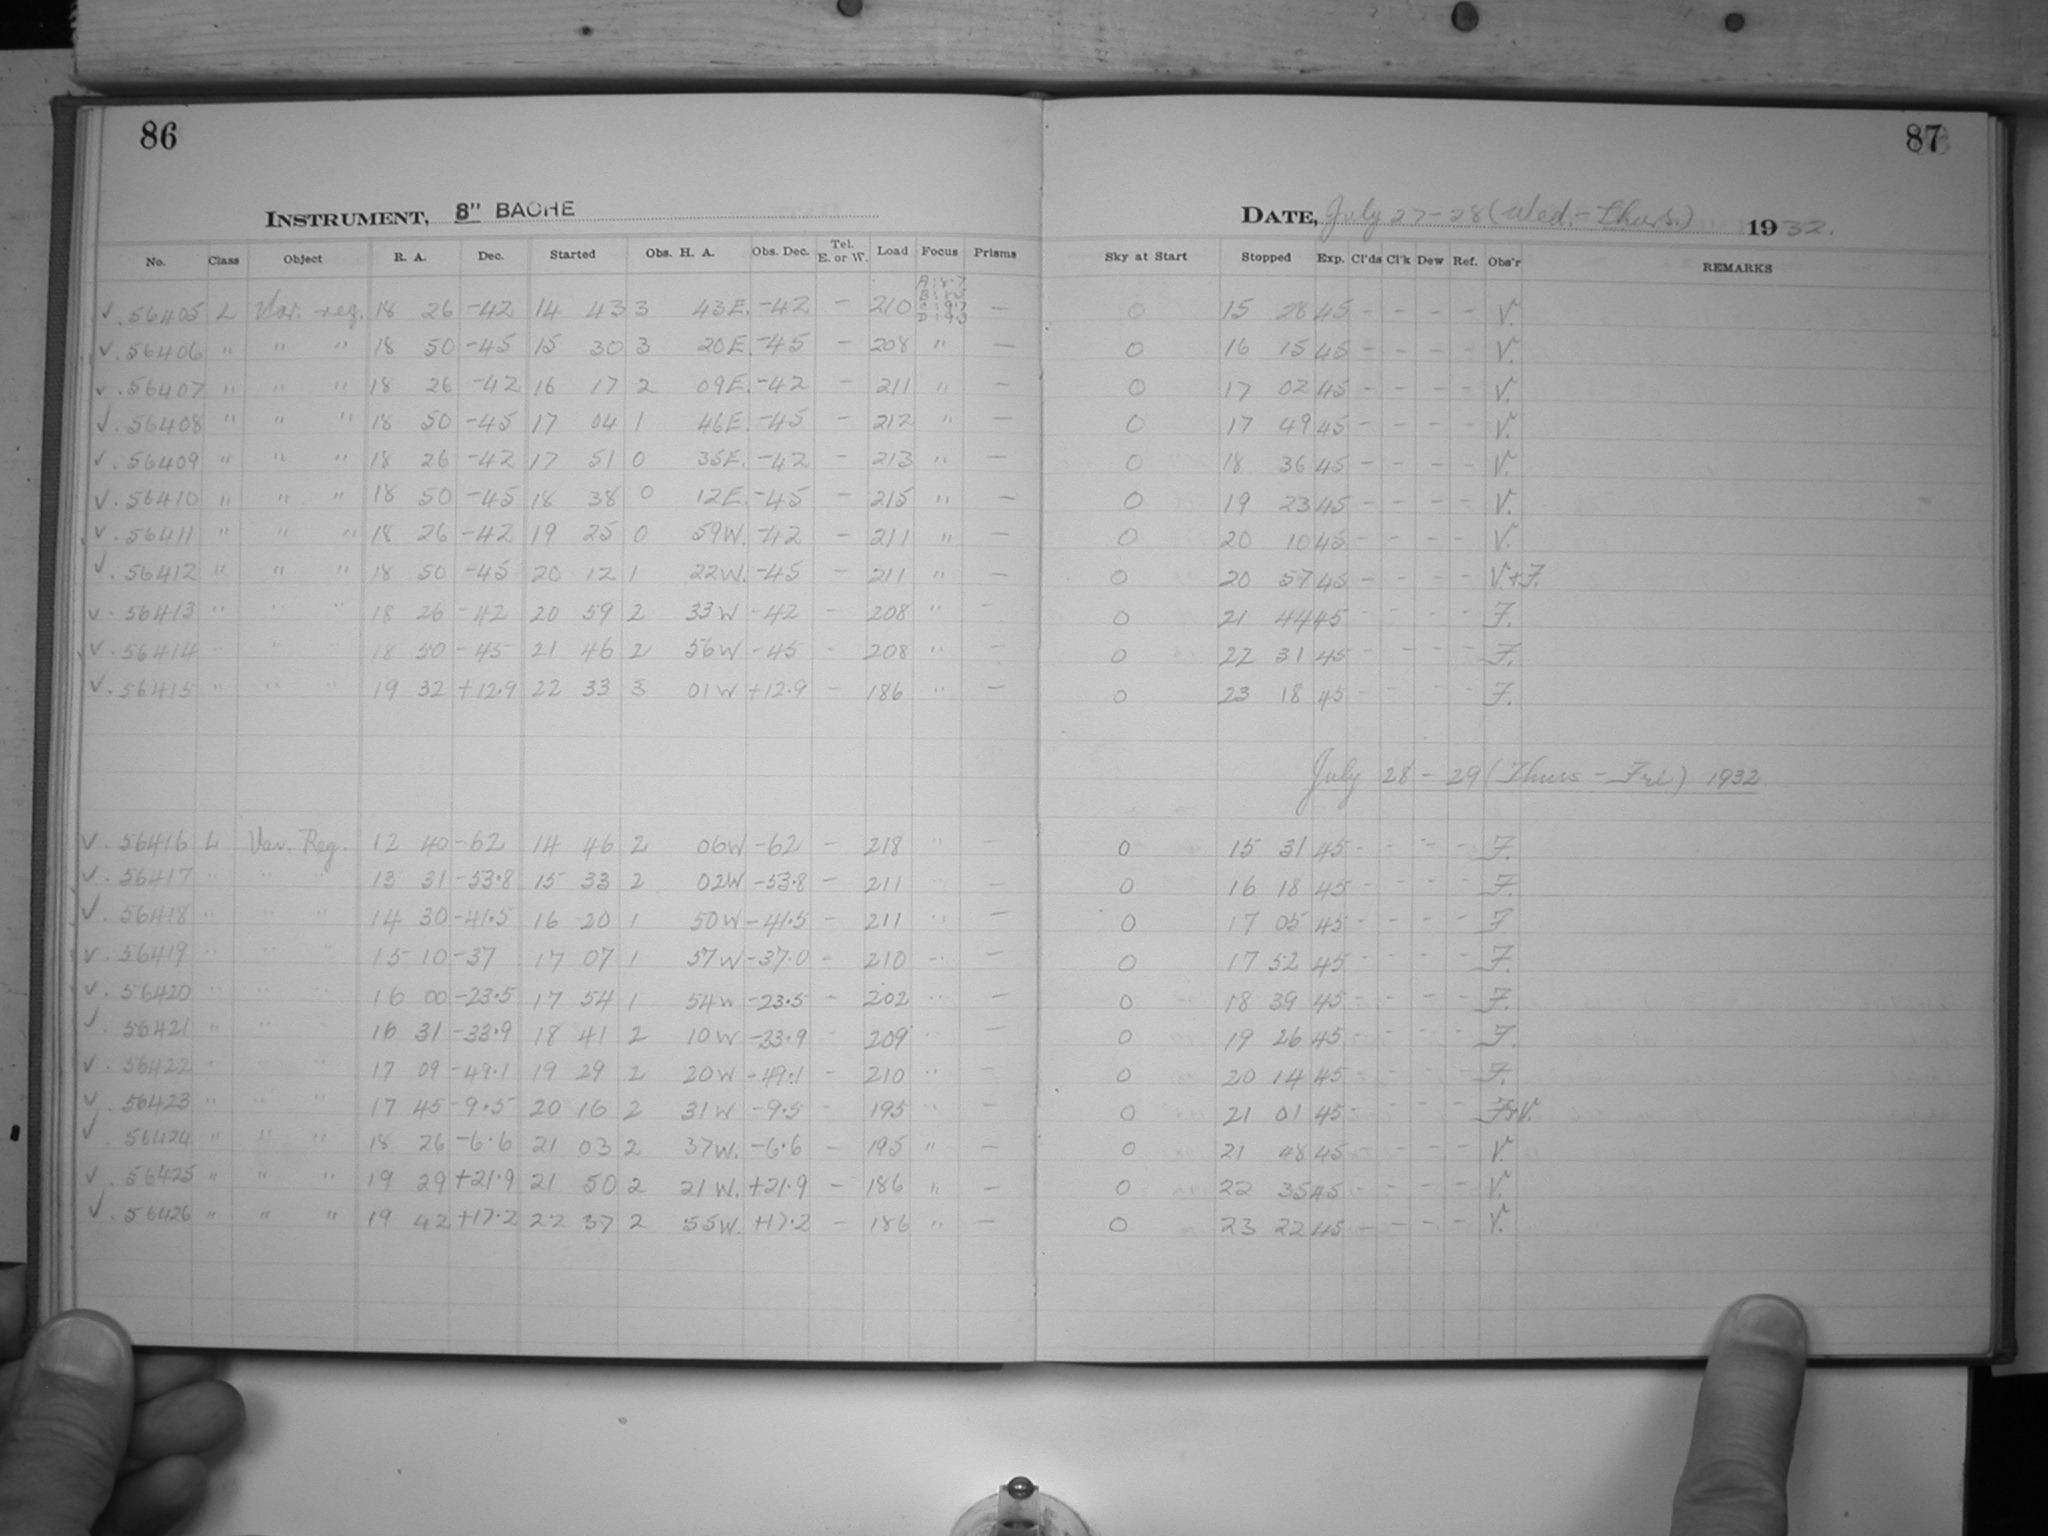 86
87
INSTRUMENT, 8" BACHE
DATE, July 27-28 (Wed.-Thurs.) 1932.
No. Class Object R. A. Dec. Started Obs. H. A. Obs. Dec. Tel. E. or W. Load Focus Prisms Sky at Start Stopped Exp. Cl'ds Cl'k Dew Ref. Obs'r REMARKS
✓. 56405 L Var. reg. 18 26 -42 14 43 3 43E. -42 - 210 - 0 15 28 45 - - - - V.
✓. 56406 " " " 18 50 -45 15 30 3 20E. -45 - 208 " - 0 16 15 45 - - - - V.
✓. 56407 " " " 18 26 -42 16 17 2 09E. -42 - 211 " - 0 17 02 45 - - - - V.
✓. 56408 " " " 18 50 -45 17 04 1 46E. -45 - 212 " - 0 17 49 45 - - - - V.
✓. 56409 " " " 18 26 -42 17 51 0 35E. -42 - 213 " - 0 18 36 45 - - - - V.
✓. 56410 " " " 18 50 -45 18 38 0 12E. -45 - 215 " - 0 19 23 45 - - - - V.
✓. 56411 " " " 18 26 -42 19 25 0 59W. -42 - 211 " - 0 20 10 45 - - - - V.
✓. 56412 " " " 18 50 -45 20 12 1 22W. -45 - 211 " - 0 20 57 45 - - - - V.+F.
✓. 56413 " " " 18 26 -42 20 59 2 33W -42 - 208 " - 0 21 44 45 - - - - F.
✓. 56414 " " " 18 50 -45 21 46 2 56W -45 - 208 " - 0 22 31 45 - - - - F.
✓. 56415 " " " 19 32 +12.9 22 33 3 01W +12.9 - 186 " - 0 23 18 45 - - - - F.
July 28 - 29 (Thurs - Fri) 1932
✓. 56416 L Var. Reg. 12 40 -62 14 46 2 06W -62 - 218 " - 0 15 31 45 - - - - F.
✓. 56417 " " " 13 31 -53.8 15 33 2 02W -53.8 - 211 " - 0 16 18 45 - - - - F.
✓. 56418 " " " 14 30 -41.5 16 20 1 50W -41.5 - 211 " - 0 17 05 45 - - - - F
✓. 56419 " " " 15 10 -37 17 07 1 57W -37.0 - 210 " - 0 17 52 45 - - - - F.
✓. 56420 " " " 16 00 -23.5 17 54 1 54W -23.5 - 202 " - 0 18 39 45 - - - - F.
✓. 56421 " " " 16 31 -33.9 18 41 2 10W -33.9 - 209 " - 0 19 26 45 - - - - F.
✓. 56422 " " " 17 09 -49.1 19 29 2 20W -49.1 - 210 " - 0 20 14 45 - - - - F.
✓. 56423 " " " 17 45 -9.5 20 16 2 31W -9.5 - 195 " - 0 21 01 45 - - - - F+V.
✓. 56424 " " " 18 26 -6.6 21 03 2 37W. -6.6 - 195 " - 0 21 48 45 - - - - V
✓. 56425 " " " 19 29 +21.9 21 50 2 21W. +21.9 - 186 " - 0 22 35 45 - - - - V.
✓. 56426 " " " 19 42 +17.2 22 37 2 55W. +17.2 - 186 " - 0 23 22 45 - - - - V.